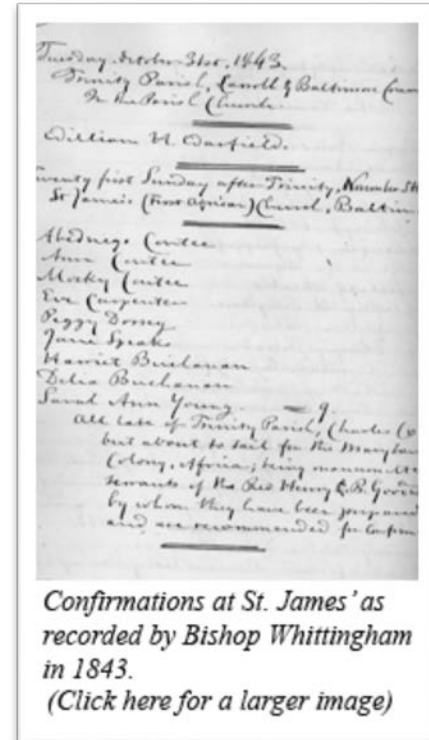 Tuesday, October 31st, 1843.
Trinity Parish, Carroll & Baltimore Coun
In the Parish Church
William H.
Twenty first Sunday after Trinity, November 5th
St James's (First African) Church, Baltim
Abednego Contee
Ann Contee
Mocky Contee
Eve Carpenter
Peggy Dorsey
Jane Speaks
Harriet Buchanan
Delia Buchanan
Sarah Ann Young. — 9.
All late of Trinity Parish, Charles Co
but about to sail for the Maryland
Colony, Africa; being
servants of the Rev Henry B.
by whom they have been prepared
and are recommended for Confirm
Confirmations at St. James' as
recorded by Bishop Whittingham
in 1843.
(Click here for a larger image)